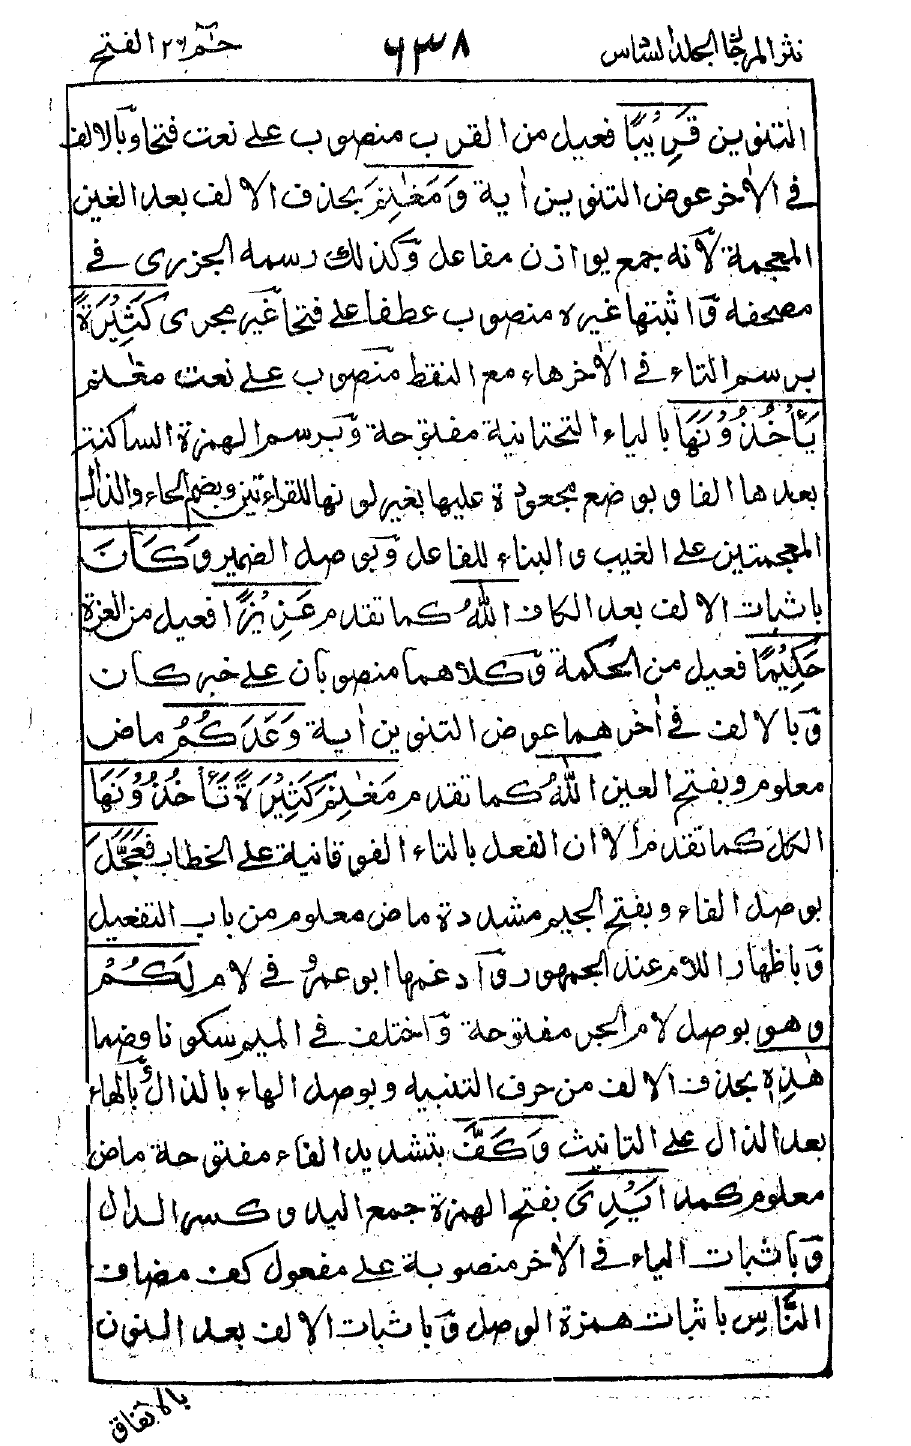 نثر المرجان الجلد السادس ٦٣٨ حٰمٓ ٢٦ الفتح
التنوين قَرِيْبًا فعيل من القرب منصوب على نعت فتحا وَّبالالف
فى الاٰخر عوض التنوين اٰية وَمَغٰنِمَ بحذف الالف بعد الغين
المعجمة لاَنه جمع يوازن مفاعل وَّكذلك رسمه الجزرى فى
مصحفه وَّاثبتها غيره منصوب عطفا على فتحا غَير مجرى كَثِيْرَةً
برسم التاء فى الاٰخرهاء مع النقط منَصوب على نعت مغٰنم
يَأْخُذُوْنَهَا بالياء التحتانية مفتوحة وَّبرسم الهمزة الساكنة
بعدها الفا وبوضع مجعودة عليها بغير لونها للقراءتين وبضم الخاء والذال
المعجمتين على الغيب والبناء للفاعل وَّبوصل الضمير وَكَانَ
باثبات الالف بعد الكاف اللّٰهُ كما تقدم عَزِيْزًا فعيل من العزة
حَكِيْمًا فعيل من الحكمة وَّكلاهما منصوبان على خبر كان
وَّبالالف فى اٰخرهما عوض التنوين اٰية وَعَدَكُمُ ماض
معلوم وبفتح العين اللّٰهُ كما تقدم مَغٰنِمَ كَثِيْرَةً تَأْخُذُوْنَهَا
الكل كما تقدم اِلا ان الفعل بالتاء الفوقانية على الخطاب فَعَجَّلَ
بوصل الفاء وبفتح الجيم مشددة ماض معلوم من باب التفعيل
وَّباظهار اللام عند الجمهور وَاَدغمها ابو عمرو فى لام لَكُمْ
وهو بوصل لام الجر مفتوحة وَّاختلف فى الميم سكونا وضما
هٰذِهٖ بحذف الالف من حرف التنبيه وبوصل الهاء بالذال وَّبالهاء
بعد الذال على التانيث وَكَفَّ بتشديد الفاء مفتوحة ماض
معلوم كمد اَيْدِىَ بفتح الهمزة جمع اليد وكسر الدال
وَّباثبات الياء فى الاٰخر منصوبة على مفعول كف مضاف
النَّاسِ باثبات همزة الوصل وَّباثبات الالف بعد النون
بالاتفاق